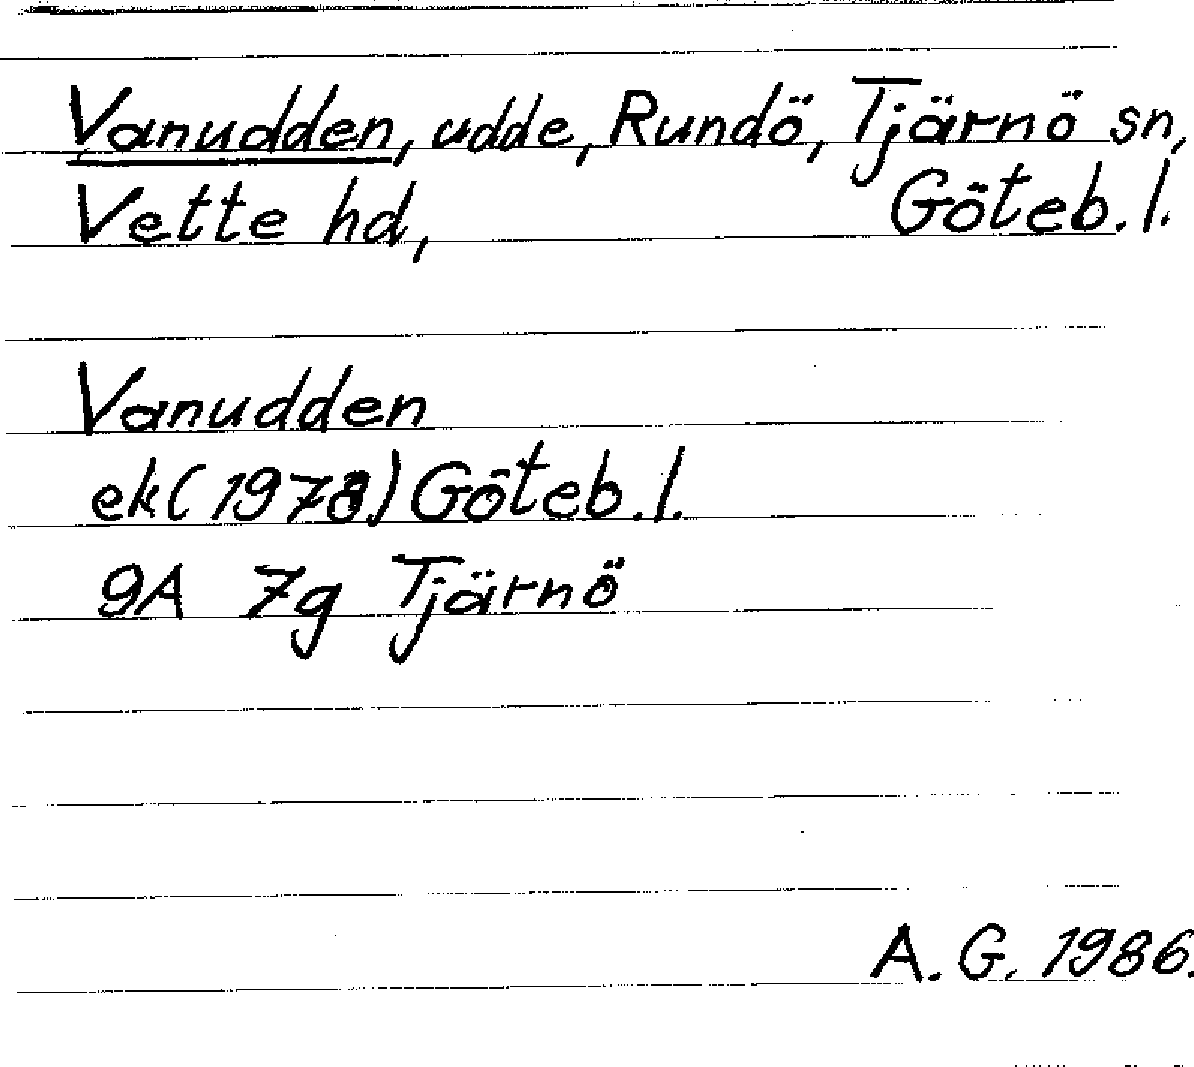 Vanudden, udde, Rundö, Tjärnö sn,
Vette hd, Göteb. l.
Vanudden
ek (1978) Göteb. l.
9A 7g Tjärnö
A. G. 1986.